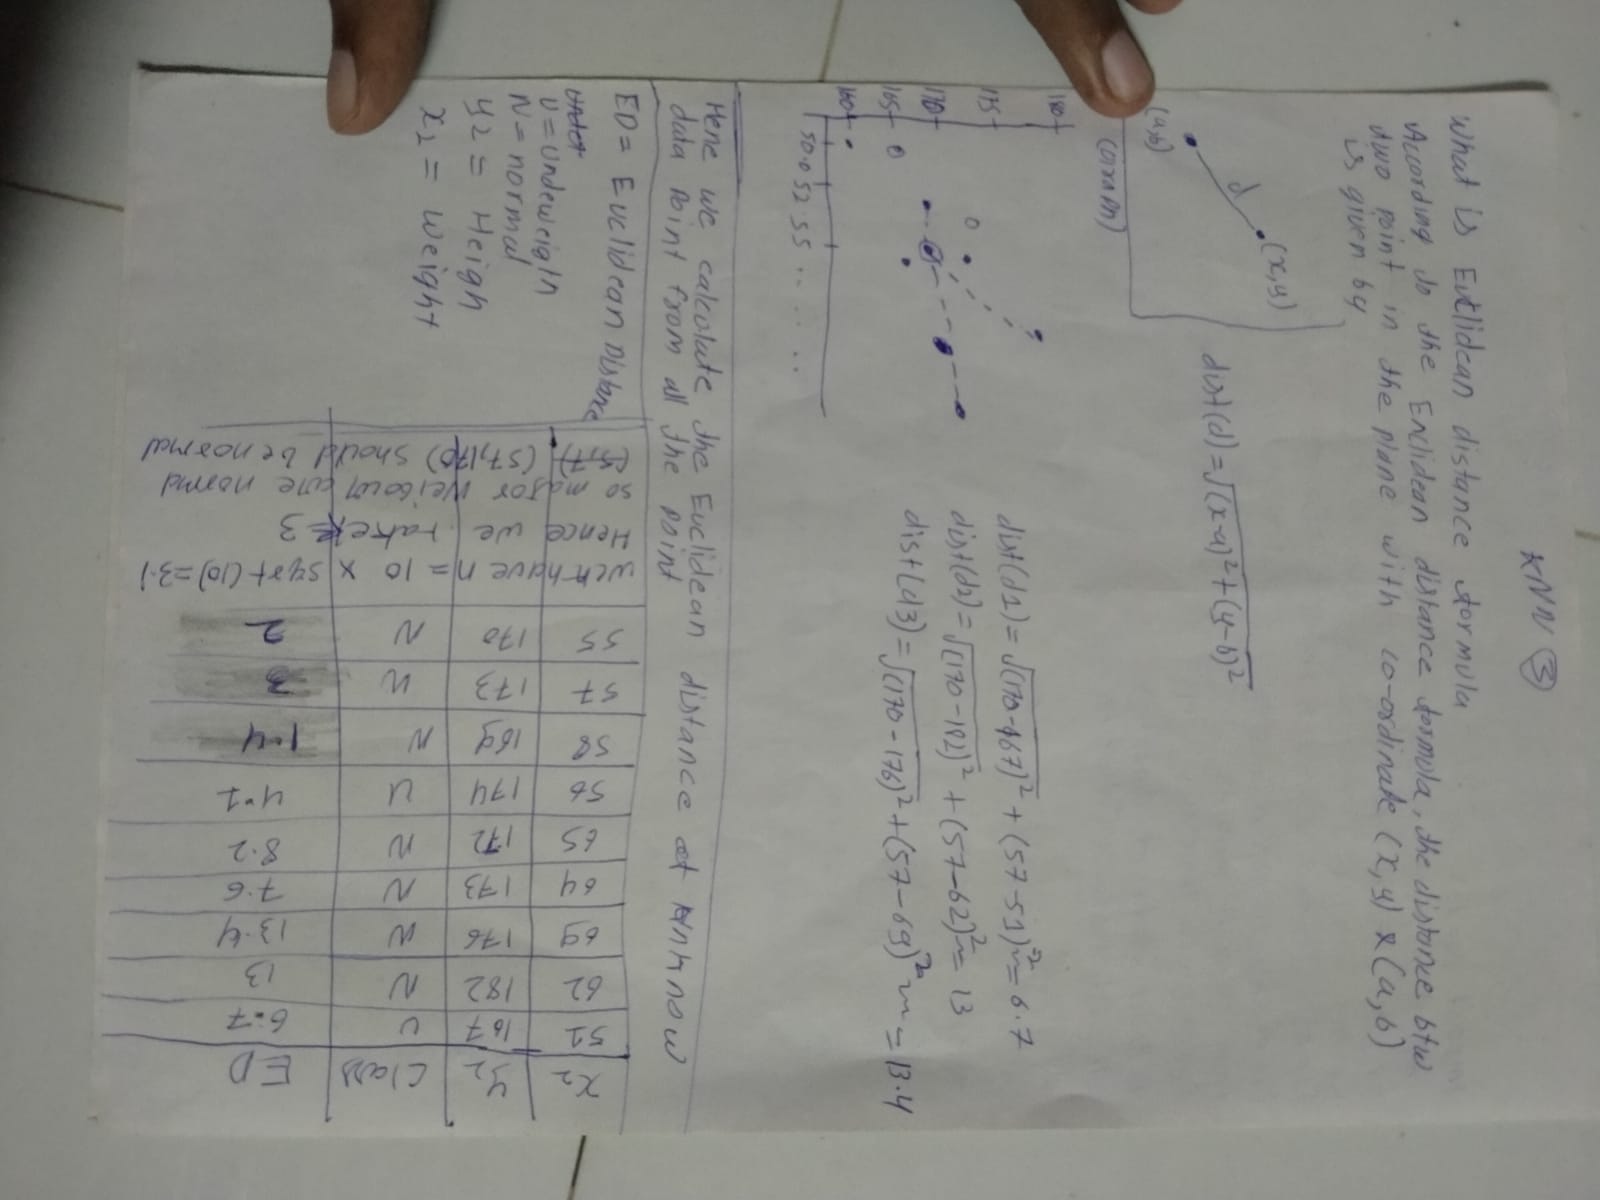 KNN ③
What is Euclidean distance formula
According to the Enclidean distance formula, the distance btw
two point in the plane with co-ordinate (x,y) & (a,b)
is given by
(x,y)
d
(a,b)
dist(d)=√(x-a)²+(y-b)²
(Graph)
180
175
170
165
160
50.0 52 55 .. .. . ..
dist(d1)=√(170-167)² + (57-51)² ~= 6.7
dist(d2)=√(170-182)² + (57-62)² ~= 13
dist(d3)=√(170-176)² + (57-69)² ~~ = 13.4
Hene we calculate the Euclidean distance of unknow
data point from all the point
ED= Euclidean Distance
U=Undeweigth
N= normal
y2= Heigh
x2= weight
x2 y2 Class ED
51 167 U 6.7
62 182 N 13
69 176 N 13.4
64 173 N 7.6
65 172 N 8.2
56 174 U 4.1
58 169 N 1.4
57 173 N 3
55 170 N 2
have n= 10 x sqrt(10)=3.1
Hence we take k= 3
so major Neibour are normal
(57,170) should be normal